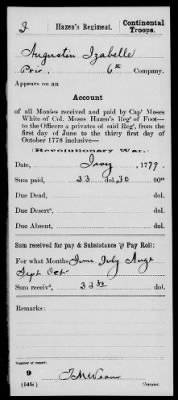 I Hazen's Regiment. Continental Troops.
Augustin Izabelle
Priv., 6th Company.
Appears on an
Account
of all Monies received and paid by Cap't Moses
White of Col. Moses Hazen's Reg't of Foot
to the Officers & privates of said Reg't, from the
first day of June to the thirty first day of
October 1778 inclusive—
(Revolutionary War.)
Date, 1779.
Sum paid, 33 dol. 30 90th
Due Dead, dol.
Due Desert'd, dol.
Due Absent, dol.
Sum received for pay & Subsistance & Pay Roll:
For what Months, June July Augt
Sept Octr
Sum receiv'd, 33 dol.
Remarks:
Number of record:
9
(545c) Copyist.